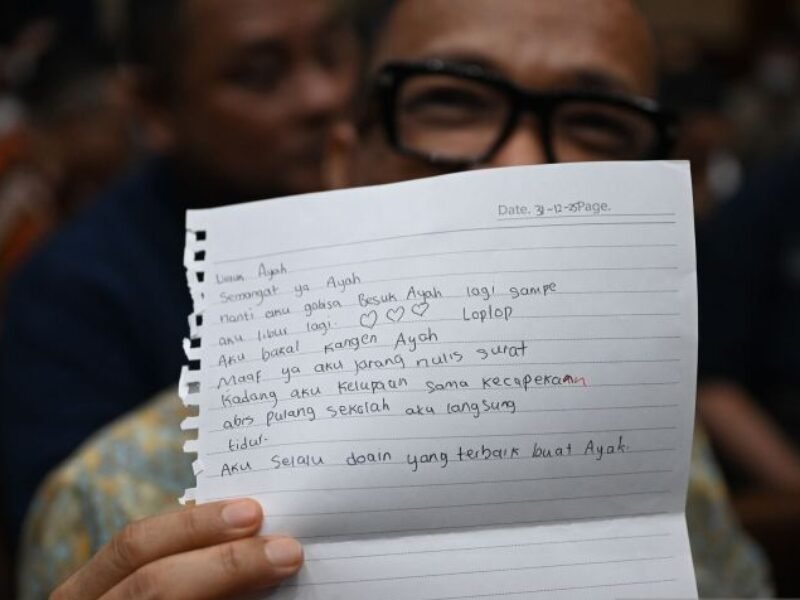 Date. 31-12-25 Page.
Untuk Ayah
Semangat ya Ayah
nanti aku gabisa Besuk Ayah lagi sampe
aku libur lagi. ♡ ♡ ♡ Loplop
Aku bakal kangen Ayah
Maaf ya aku jarang nulis surat
Kadang aku kelupaan sama kecapekan
abis pulang sekolah aku langsung
tidur.
Aku selalu doain yang terbaik buat Ayah.